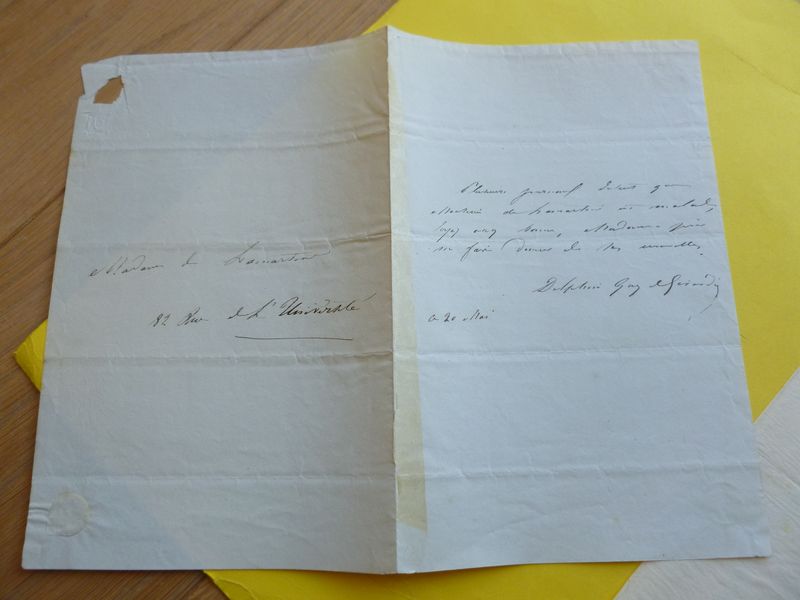 Madame de Lamartine
82 Rue de L'Université
Plusieurs journaux disent que
Monsieur de Lamartine est malade,
soyez assez bonne, Madame, pour
me faire donner de ses nouvelles.
Delphine Gay de Girardin
ce 20 Mai